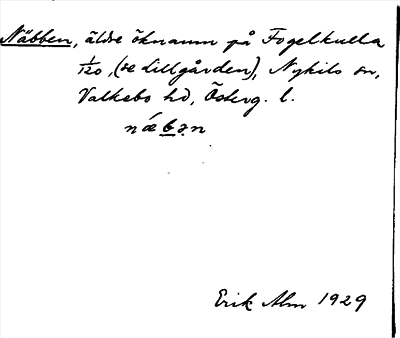 Näbben, äldre öknamn på Fogelkulla
1/120, (se Lillgården), Nykils sn,
Valkebo hd, Österg. l.
næ´bə̣n
Erik Alm 1929